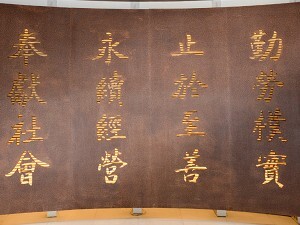 勤勞樸實
止於至善
永續經營
奉獻社會